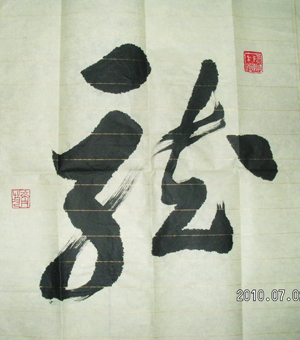 龍
2010.07.0